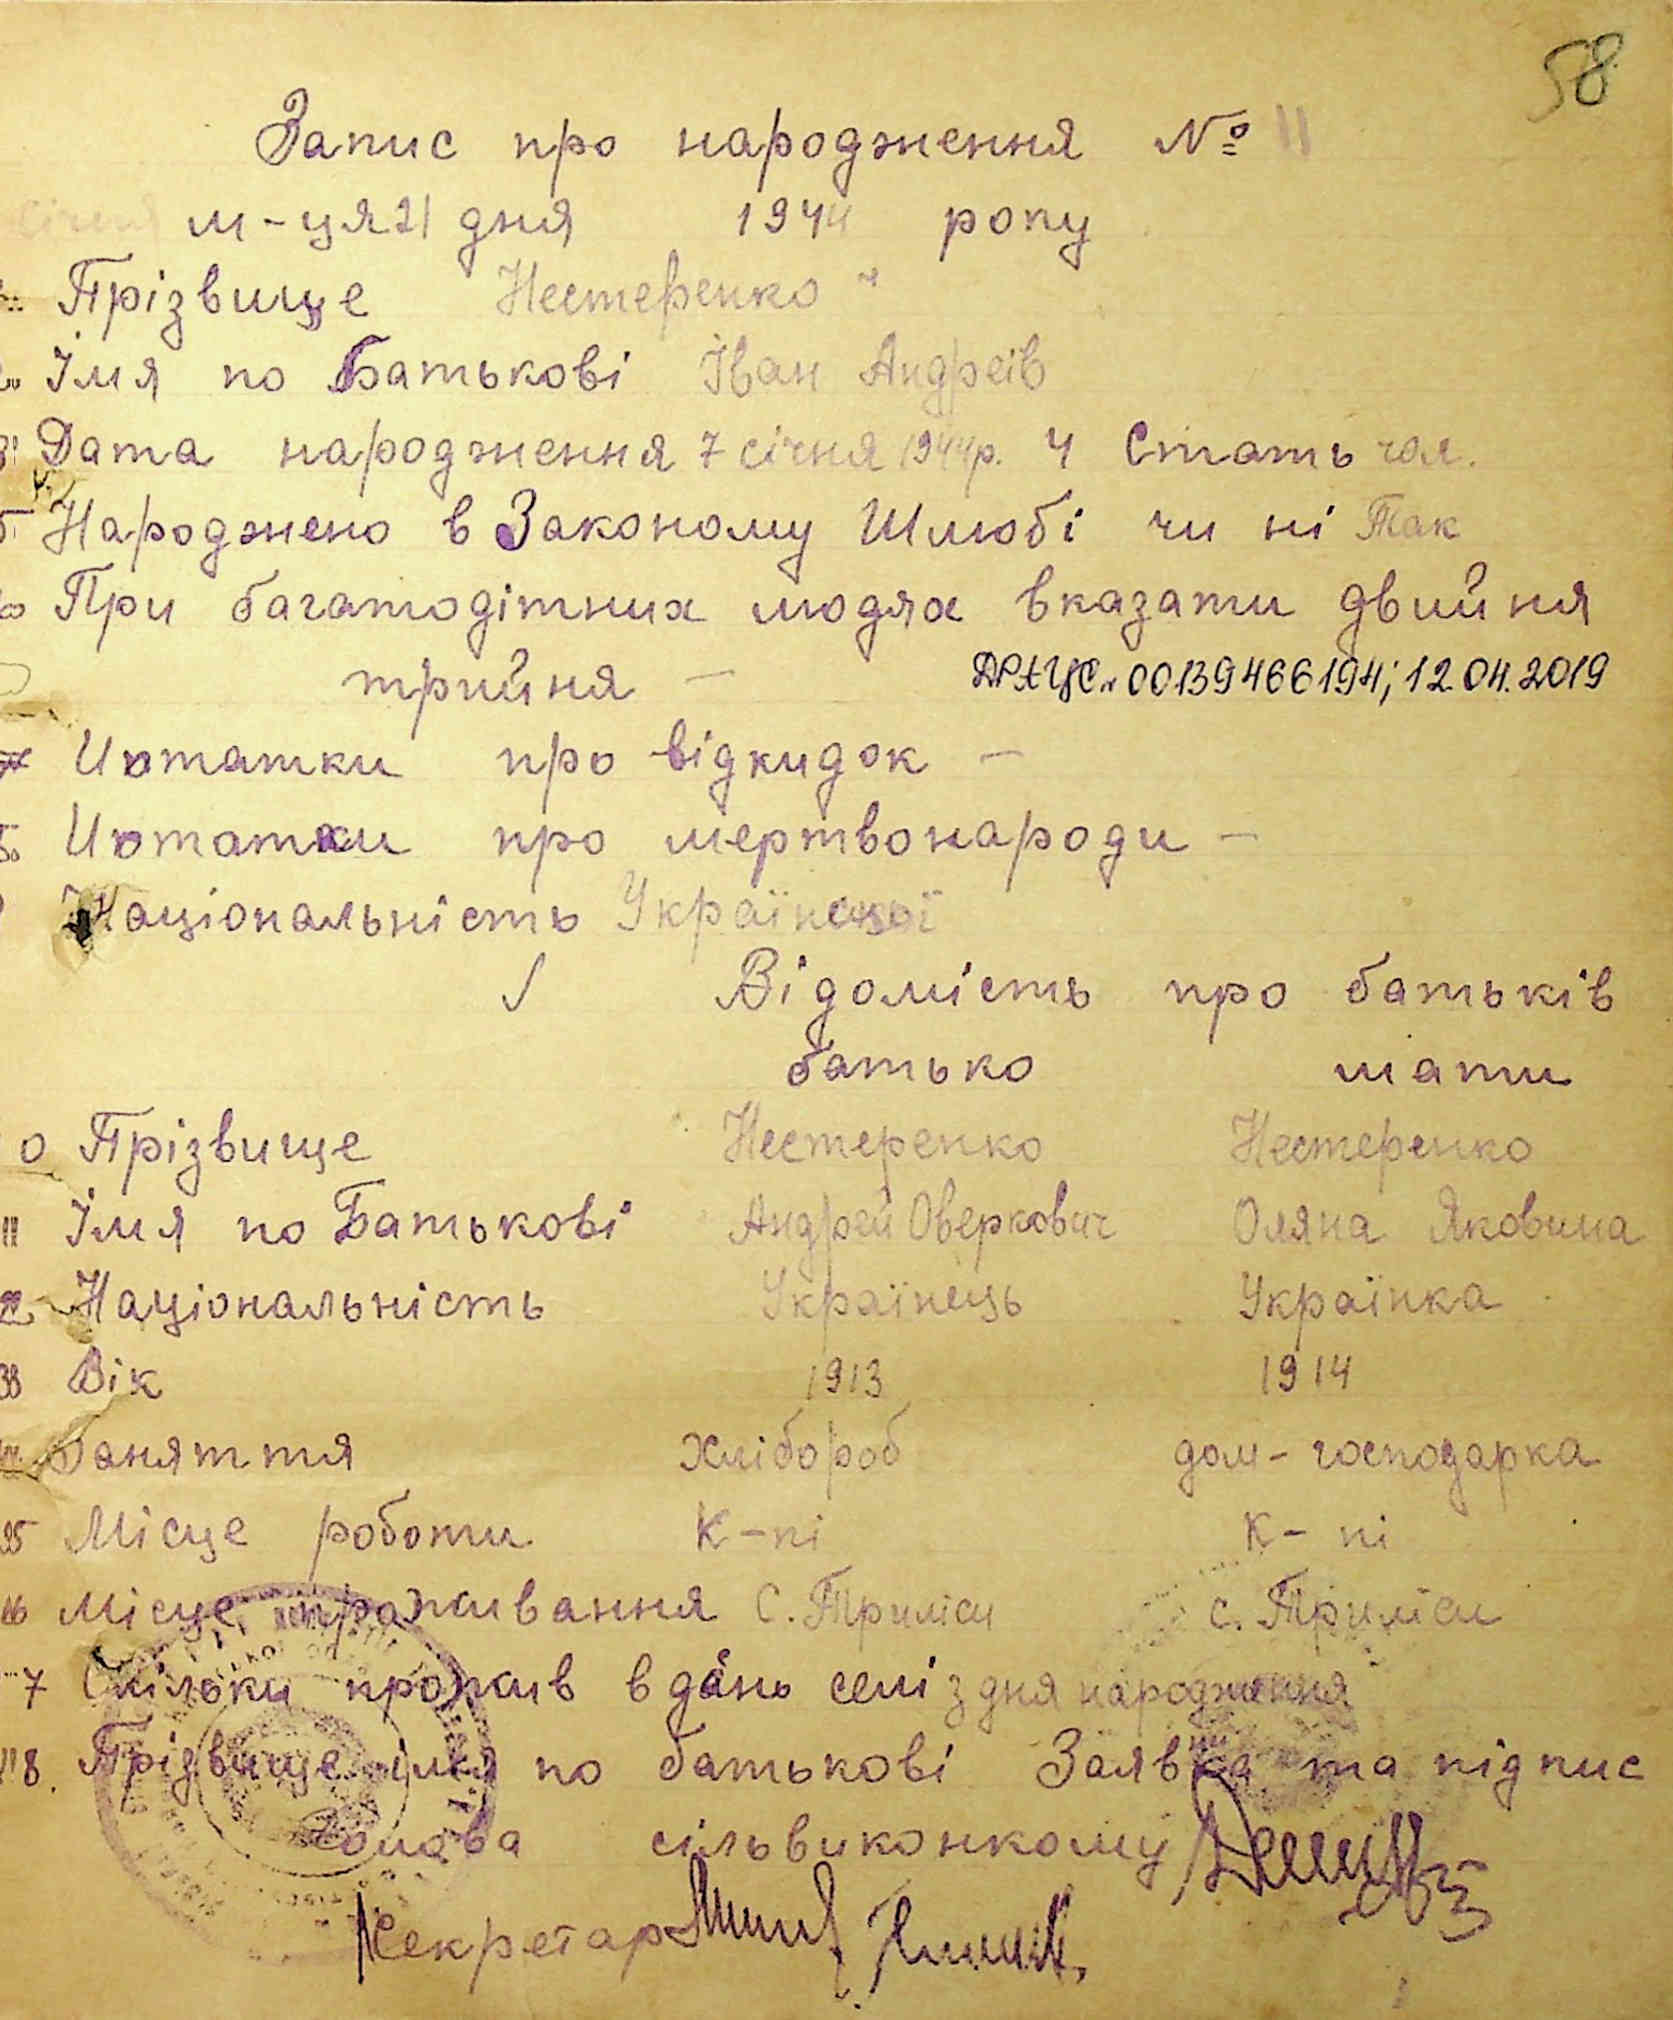 58
Запис про народження № 11
січня м-ця 21 дня 1944 року
Прізвище Нестеренко
Імя по Батькові Іван Андреїв
Дата народження 7 січня 1944р. 4 Стать чол.
Народжено в Законому Шлюбі чи ні Так
При багатодітних людях вказати двийня
трийня —
ДРАЦС 00139466194; 12.04.2019
Иотатки про відкидок —
Иотатки про мертвонароди —
Національність
Відомість про батьків
батько мати
Прізвище Нестеренко Нестеренко
11 Імя по Батькові Андрей Оверкович Оляна Яковина
Національність Українець Українка
Вік 1913 1914
Заняття хлібороб дом-господарка
Місце роботи К-пі К-пі
Місце проживання С. Триліси с. Триліси
7 Скільки прожив в дань селі з дня народження
18. Прізвище імя по батькові Заявка та підпис
Голова сільвиконкому
Секретар